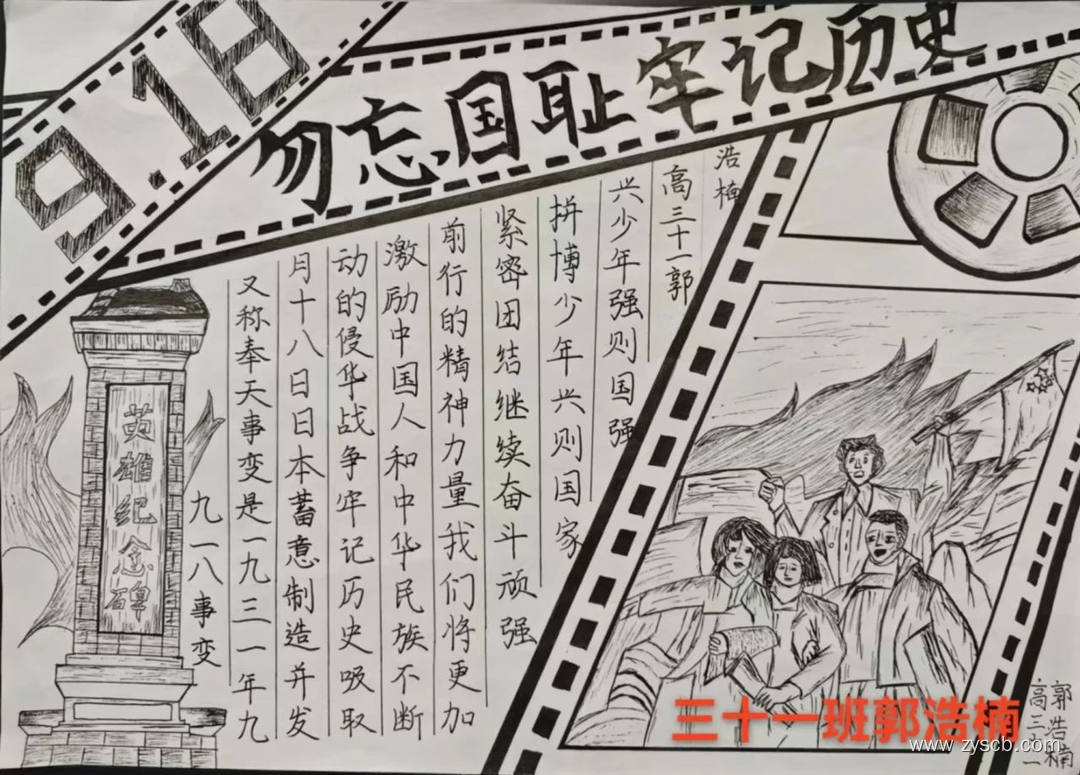 9.18
勿忘国耻牢记历史
英雄纪念碑
九一八事变
又称奉天事变是一九三一年九
月十八日日本蓄意制造并发
动的侵华战争牢记历史吸取
激励中国人和中华民族不断
前行的精神力量我们将更加
紧密团结继续奋斗顽强
拼博少年兴则国家
兴少年强则国强
高三十一郭
浩楠
三十一班郭浩楠
高三十一
郭浩楠
www.zyscb.com